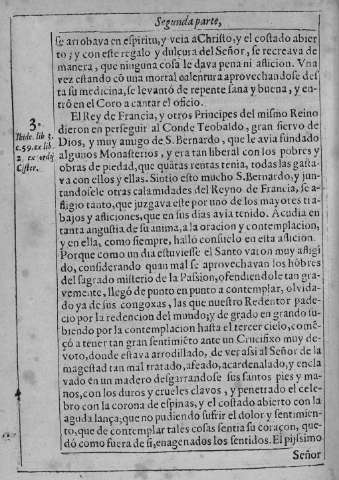 Segunda parte,
se arrobava en espiritu, y veia a Christo, y el costado abier
to; y con este regalo y dulçura del Señor, se recreava de
manera, que ninguna cosa le dava pena ni afliciõ. Vna
vez estando cõ vna mortal calentura aprovechandose des
ta su medicina, se levantó de repente sana y buena, y en-
tró en el Coro a cantar el oficio.
3.
Ibide. lib 3.
c.59. ex lib.
2. ex
Cister.
El Rey de Francia, y otros Principes del mismo Reino
dieron en perseguir al Conde Teobaldo, gran siervo de
Dios, y muy amigo de S. Bernardo, que le avia fundado
algunos Monasterios, y era tan liberal con los pobres y
obras de piedad, que quãtas rentas tenia, todas las gasta-
va con ellos y ellas. Sintio esto mucho S. Bernardo, y jun-
tandosele otras calamidades del Reyno de Francia, se a-
fligio tanto, que juzgava este por vno de los mayores tra-
bajos y afliciones, que en sus dias avia tenido. Acudia en
tanta angustia de su anima, a la oracion y contemplacion,
y en ella, como siempre, hallo consuelo en esta aflicion.
Porque como vn dia estuviesse el Santo varon muy afligi
do, considerando quan mal se aprovechavan los hõbres
del sagrado misterio de la Passion, ofendiendole tan gra-
vemente, llegó de punto en punto a contemplar, olvida-
do ya de sus congoxas, las que nuestro Redentor pade-
cio por la redencion del mundo; y de grado en grando su-
biendo por la contemplacion hasta el tercer cielo, comẽ-
çó a tener tan gran sentimiẽto ante vn Crucifixo muy de-
voto, donde estava arrodillado, de ver assi al Señor de la
magestad tan mal tratado, afeado, acardenalado, y encla
vado en vn madero desgarrandose sus santos pies y ma-
nos, con los duros y crueles clavos, y penetrado el cele-
bro con la corona de espinas, y el costado abierto con la
aguda lança; que no pudiendo sufrir el dolor y sentimien-
to, que de contemplar tales cosas sentia su coraçon, que-
dó como fuera de si, enagenados los sentidos. El pijssimo
Señor